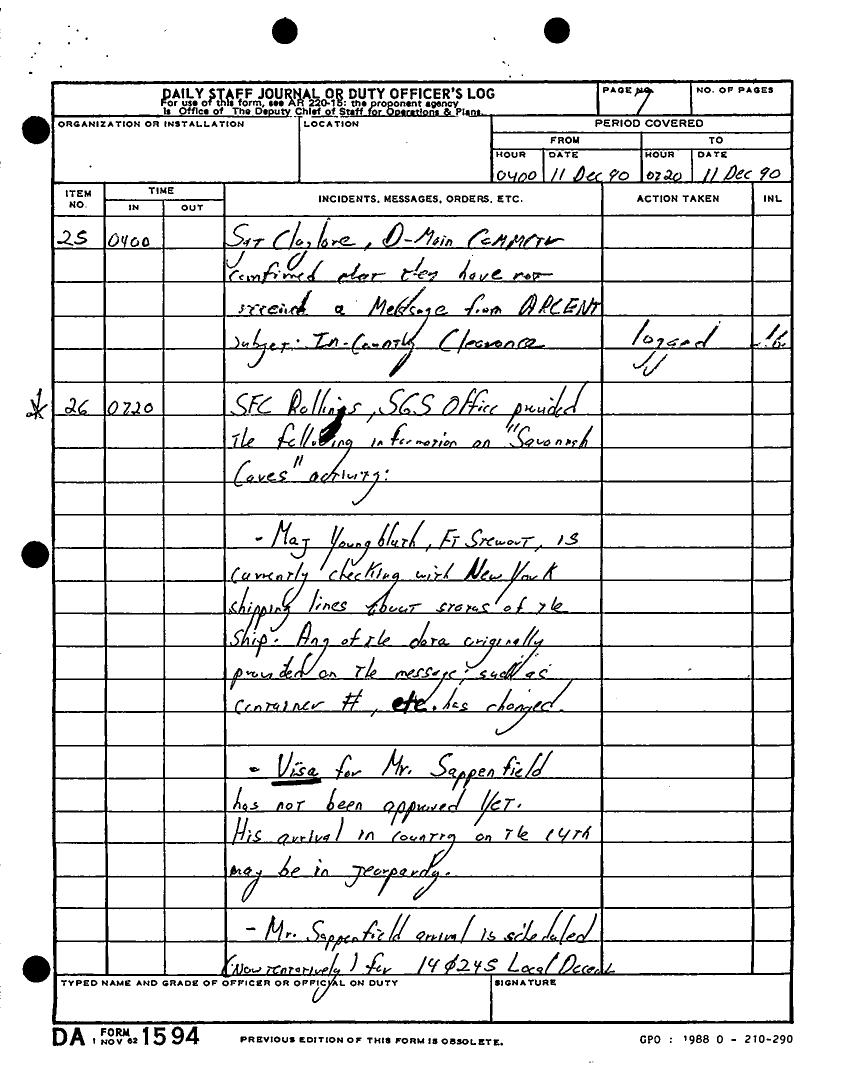 DAILY STAFF JOURNAL OR DUTY OFFICER'S LOG
For use of this form, see AR 220-15; the proponent agency
is Office of The Deputy Chief of Staff for Operations & Plans.
PAGE NO.
7
NO. OF PAGES
ORGANIZATION OR INSTALLATION
LOCATION
PERIOD COVERED
FROM
TO
HOUR
DATE
HOUR
DATE
0400
11 Dec 90
0720
11 Dec 90
ITEM NO.
TIME
IN
OUT
INCIDENTS, MESSAGES, ORDERS, ETC.
ACTION TAKEN
INL
25 0400 SGT, D-Main
confirmed that they have not
received a Message from ARCENT
subject: In-Country Clearance logged
26 0720 SFC Rollings, SGS Office provided
the following information on "Savannah
Caves" activity:
- Maj Youngbluth, Ft Stewart, is
currently checking with New York
shipping lines about status of the
ship. Any of the data originally
provided on the message; such as
container #, etc. has changed.
- Visa for Mr. Sappenfield
has not been approved yet.
His arrival in country on the 14th
may be in jeorpardy.
- Mr. Sappenfield arrival is scheduled
(Now tentatively) for 140245 Local
TYPED NAME AND GRADE OF OFFICER OR OFFICIAL ON DUTY
SIGNATURE
DA FORM 1 NOV 62 1594
PREVIOUS EDITION OF THIS FORM IS OBSOLETE.
GPO : 1988 O - 210-290